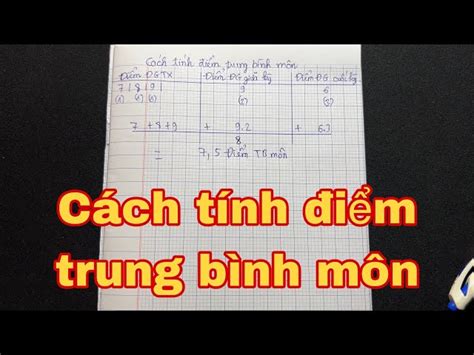 Cách tính điểm trung bình môn
Điểm ĐGTX Điểm ĐG giữa kỳ Điểm ĐG cuối kỳ
7 | 8 | 9 | 9 6
7 + 8 + 9 + 9.2 + 6.3
8
= 7,5 Điểm TB môn
Cách tính điểm
trung bình môn